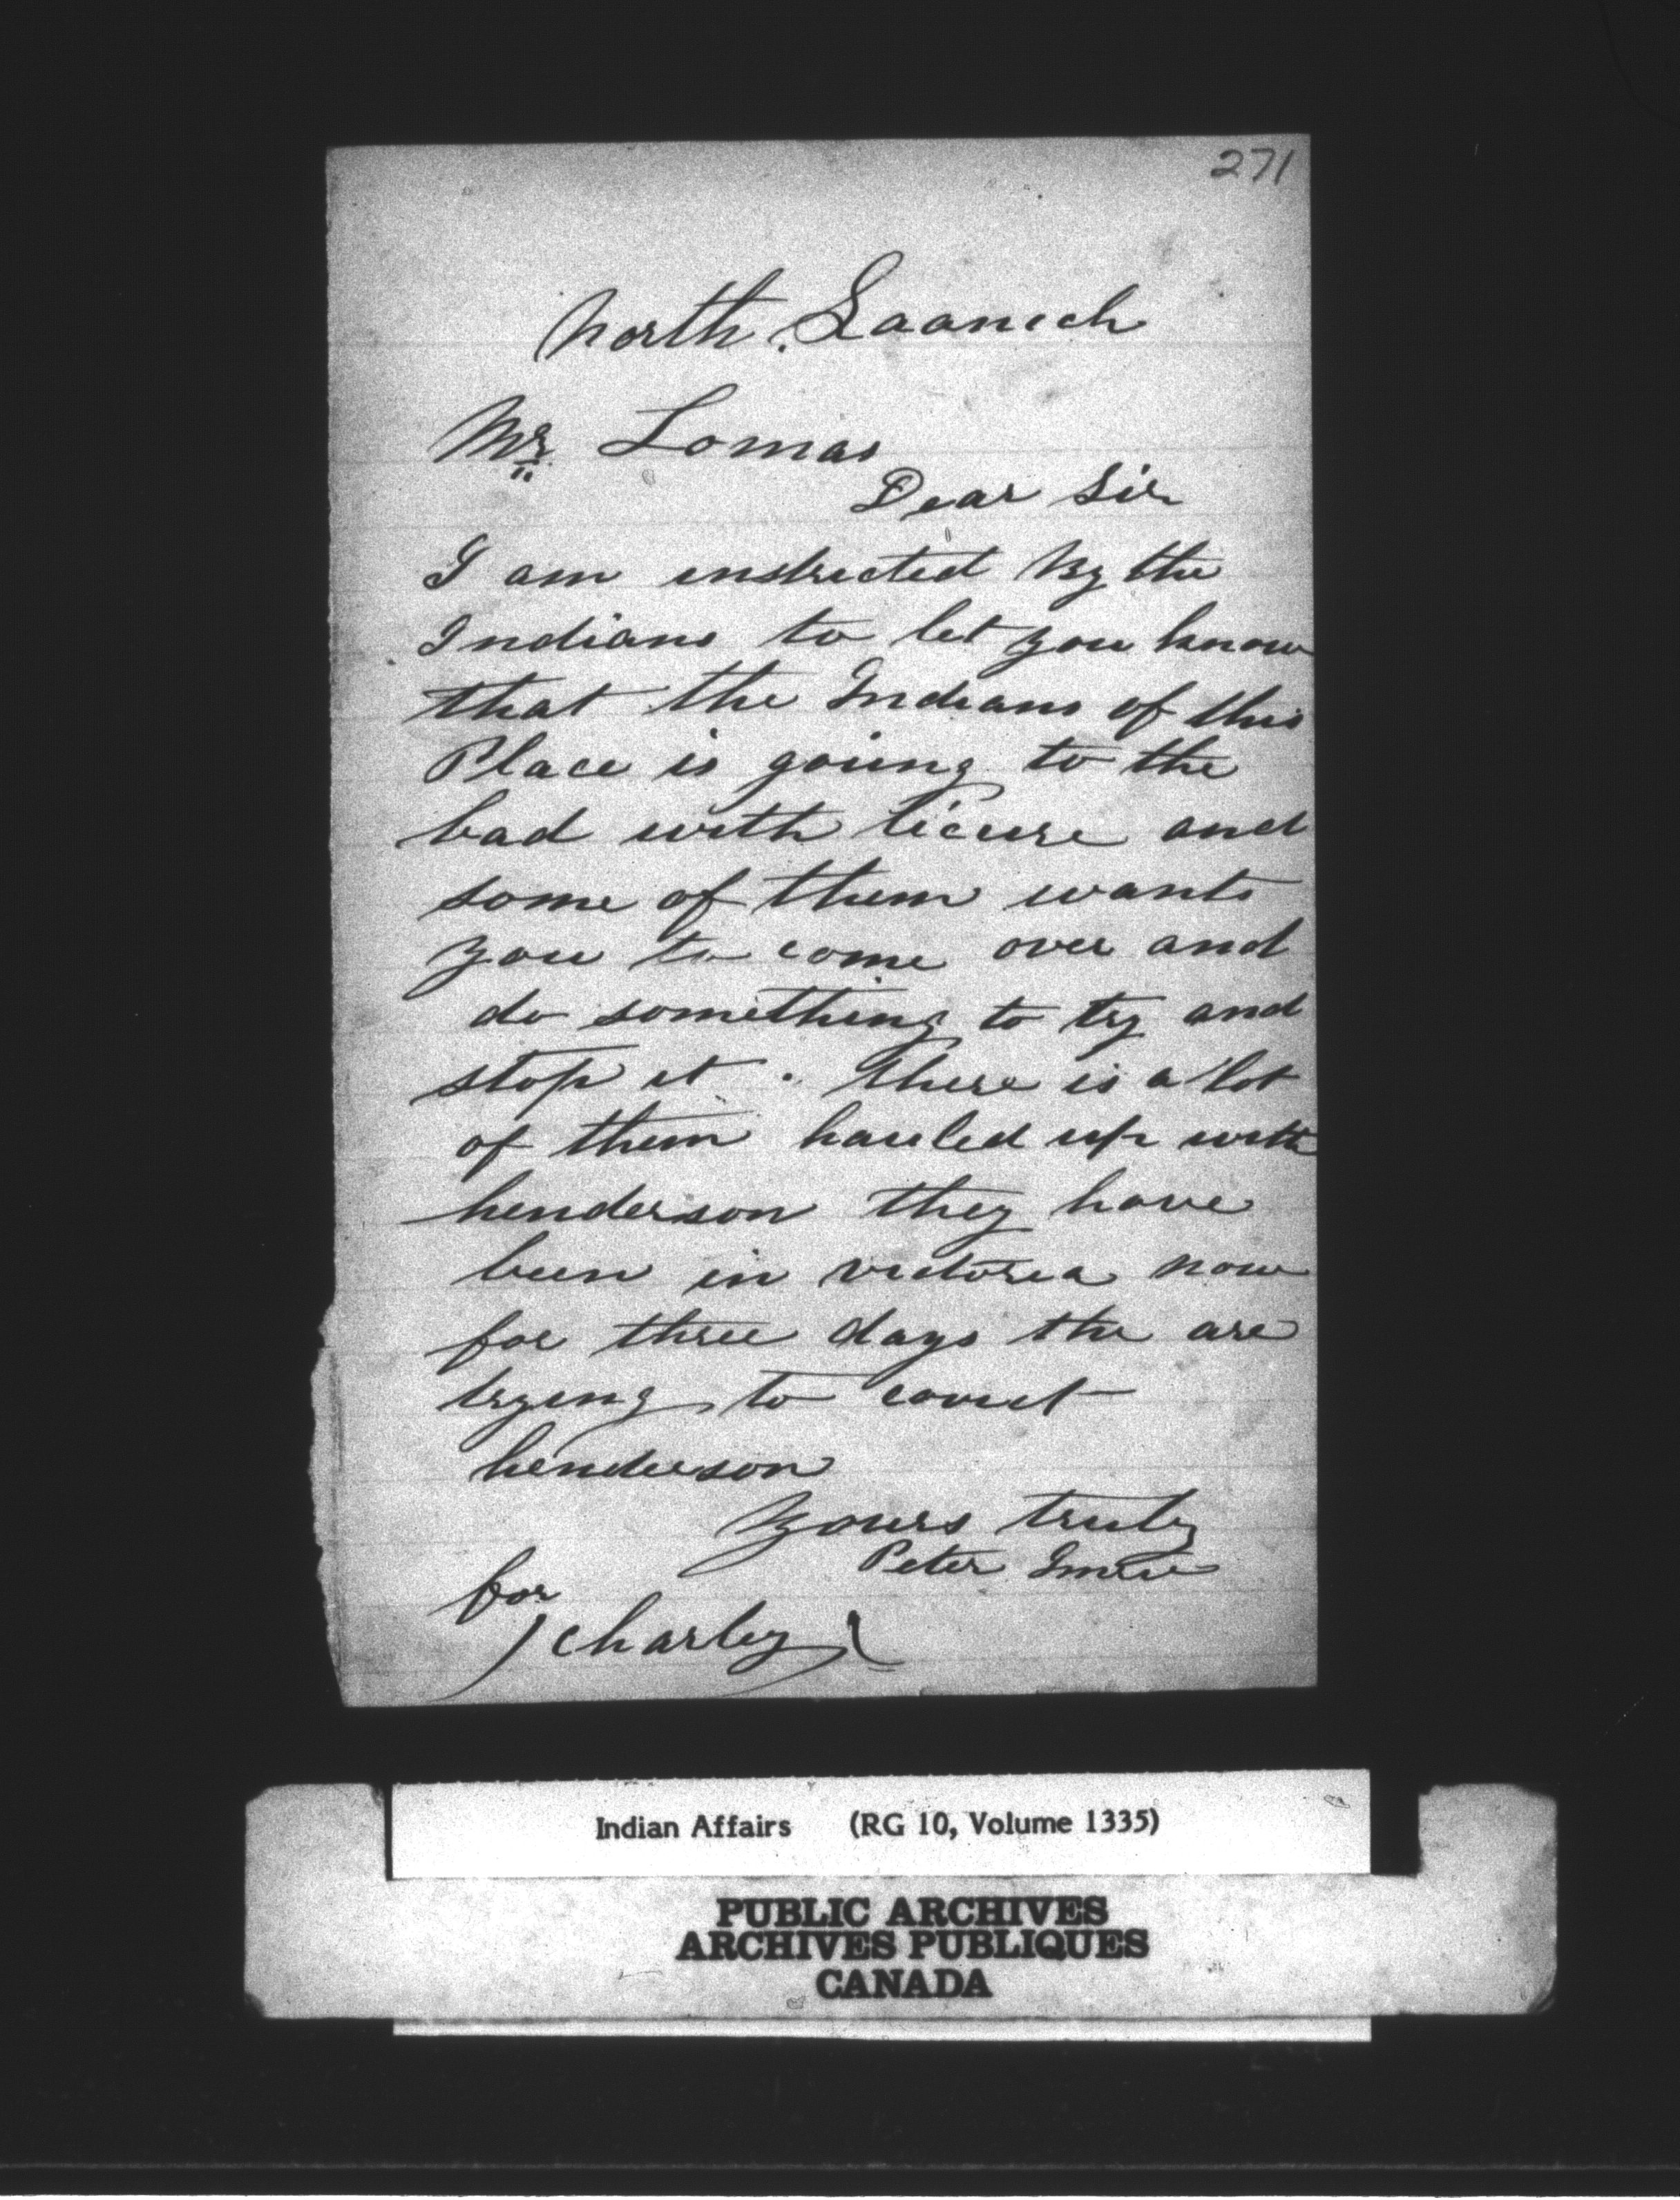 271
North Saanich
Mr Lomas
Dear Sir
I am instructed by the
Indians to let you know
that the Indians of this
Place is going to the
bad with licure and
some of them wants
you to come over and
do something to try and
stop it. there is a lot
of them hauled up with
henderson they have
been in victoria now
for three days the are
trying to convict
henderson
Yours truly
Peter Imrie
for
Charley
Indian Affairs (RG 10, Volume 1335)
PUBLIC ARCHIVES
ARCHIVES PUBLIQUES
CANADA